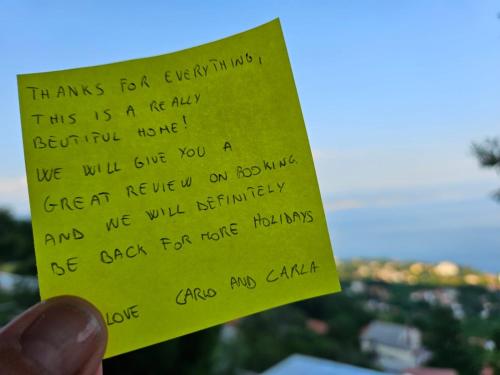 THANKS FOR EVERYTHING,
THIS IS A REALLY
BEUTIFUL HOME!
WE WILL GIVE YOU A
GREAT REVIEW ON BOOKING
AND WE WILL DEFINITELY
BE BACK FOR MORE HOLIDAYS
LOVE CARLO AND CARLA